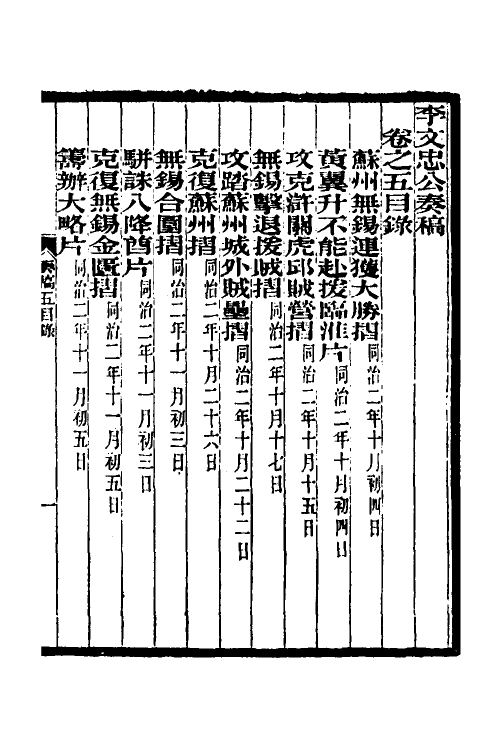 李文忠公奏稿
卷之五目錄
蘇州無錫連獲大勝摺同治二年十月初四日
黃翼升不能赴援臨淮片同治二年十月初四日
攻克滸關虎邱賊營摺同治二年十月十五日
無錫擊退援賊摺同治二年十月十七日
攻踏蘇州城外賊壘摺同治二年十月二十二日
克復蘇州摺同治二年十月二十六日
無錫合圍摺同治二年十一月初三日
駢誅八降酋片同治二年十一月初三日
克復無錫金匱摺同治二年十一月初五日
籌辦大略片同治二年十一月初五日
奏稿五目錄
一